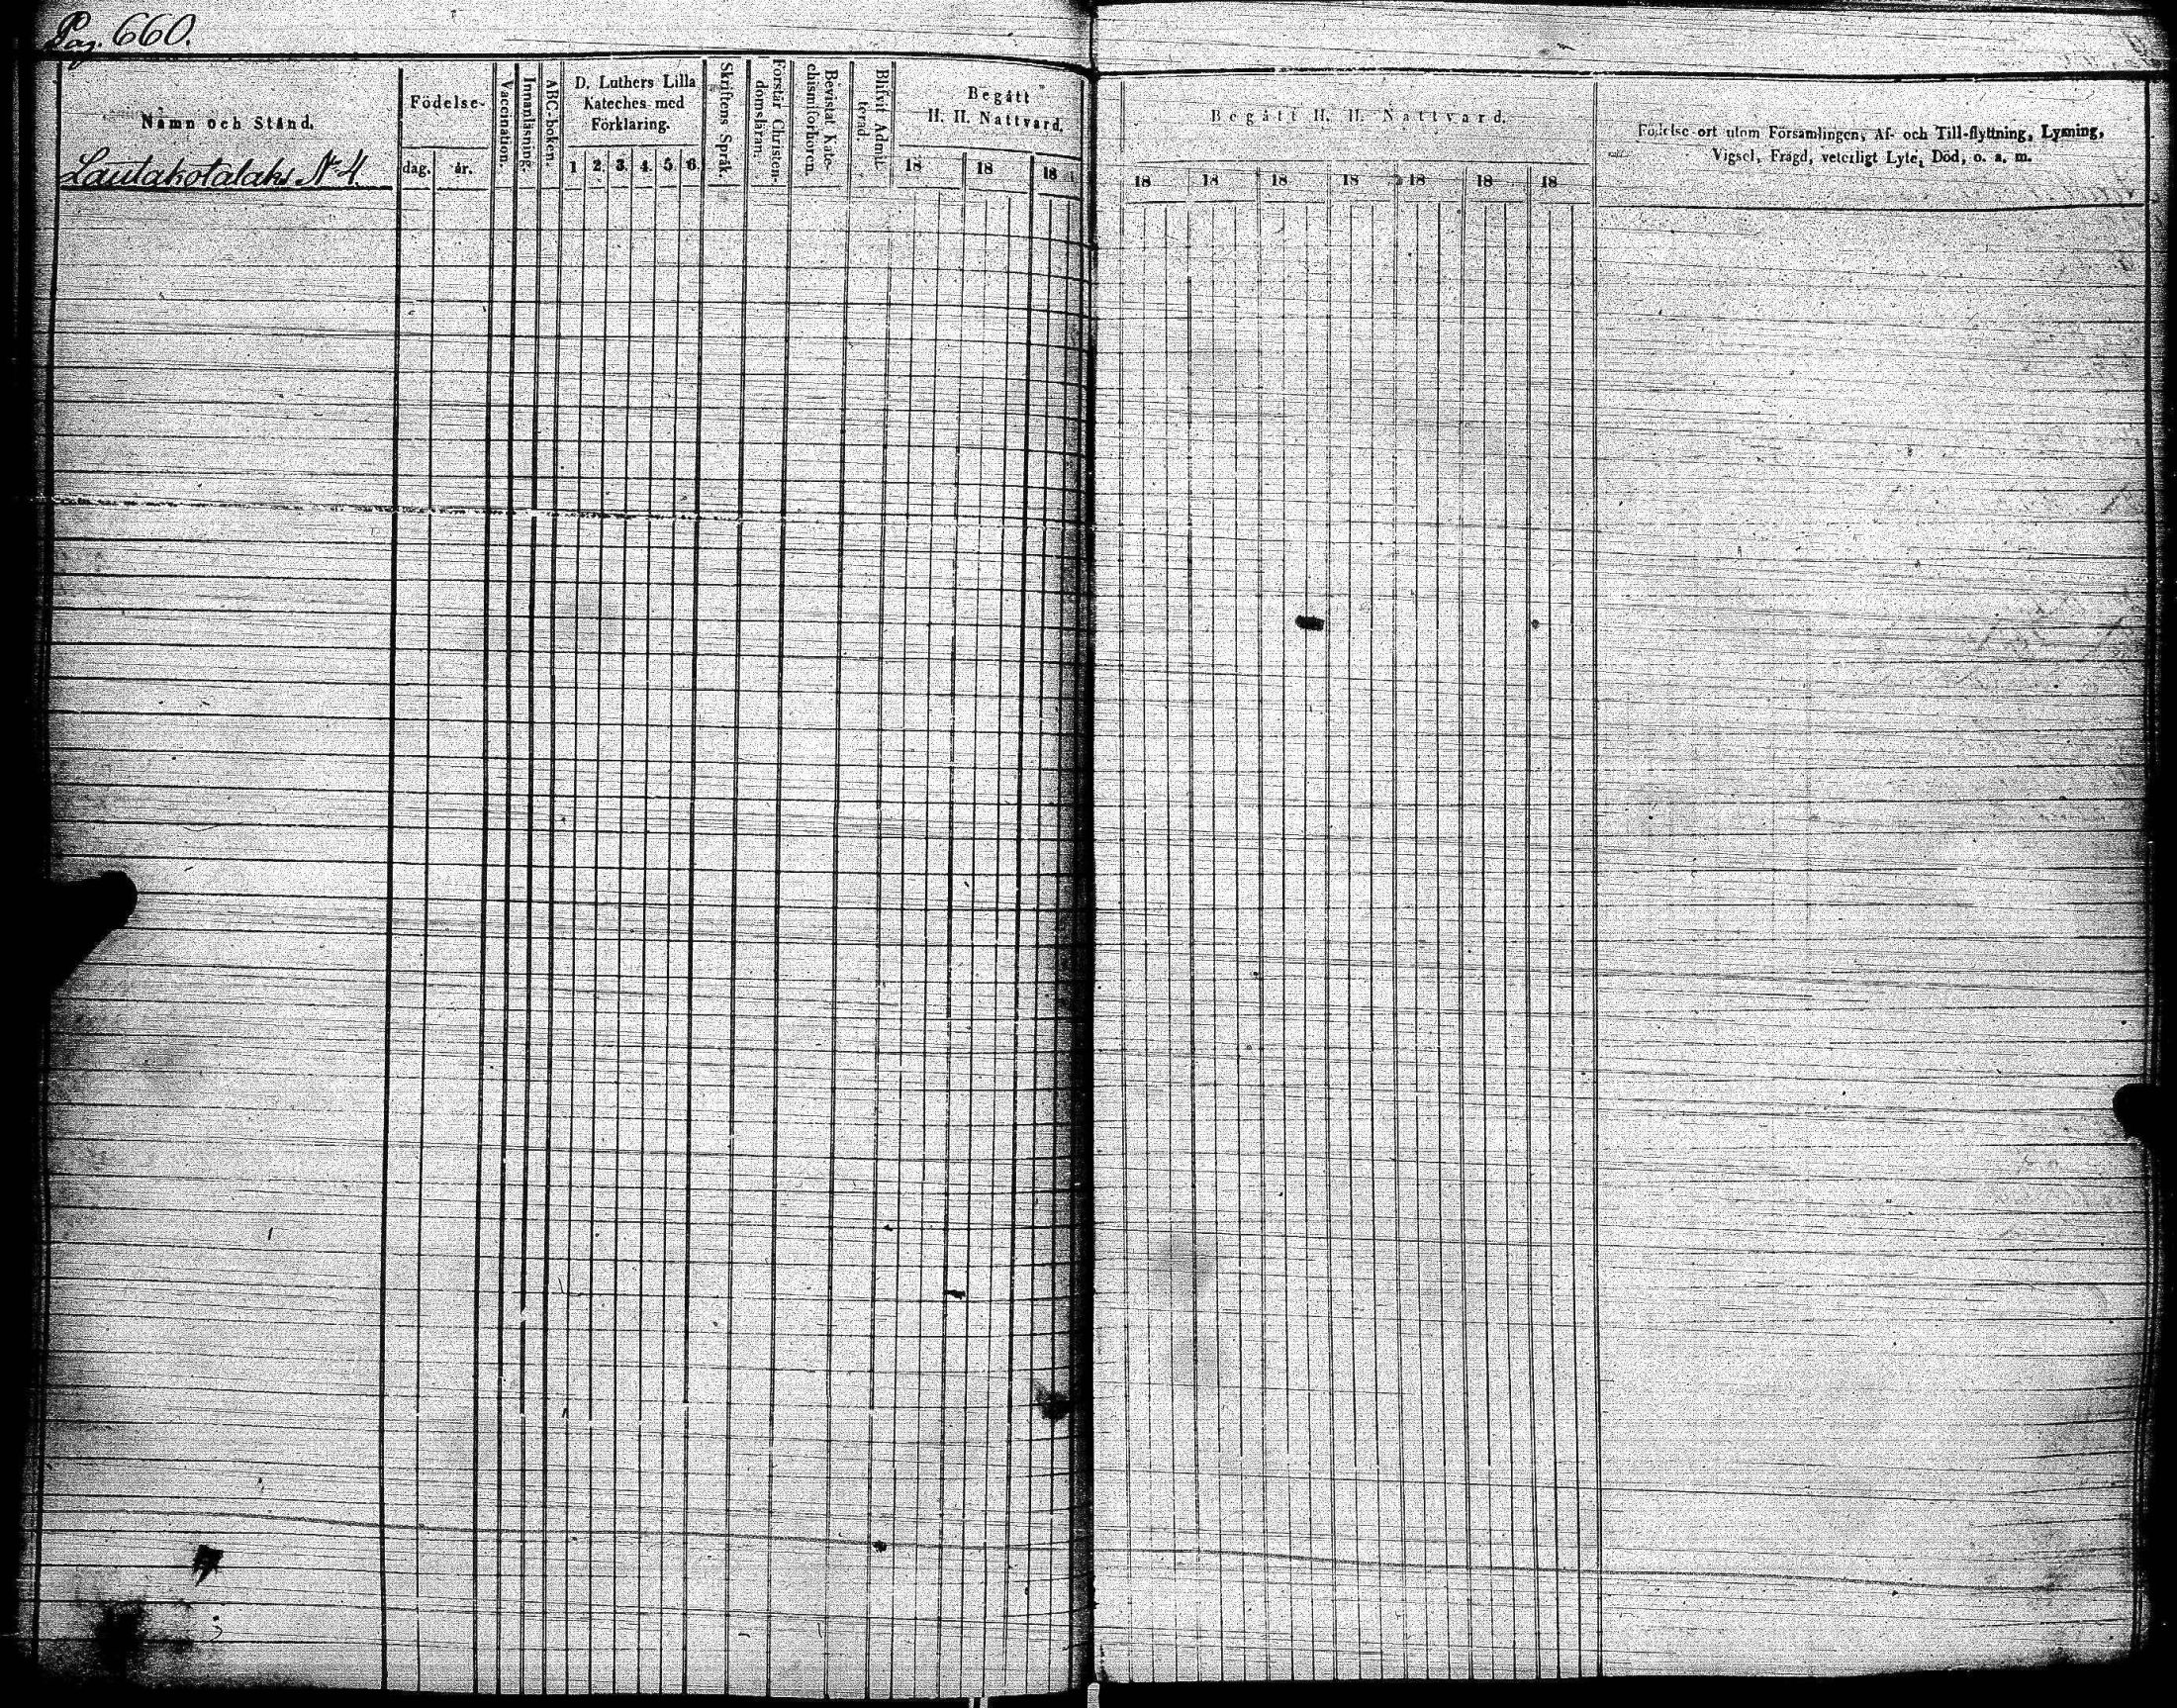 Pag. 660.
Namn och Stånd.
Lautakotalaks No 4.
Födelse-
dag.
år.
Vaccination.
Innanläsning.
ABC-boken.
D. Luthers Lilla
Kateches med
Förklaring.
1 2. 3. 4. 5. 6.
Skriftens Språk.
Förstår Christen-
domsläran.
Bevistat Kate-
chismiförhören.
Blifvit Admit-
terad.
Begått
H. H. Nattvard.
18 18 18
Begått H. H. Nattvard.
18 18 18 18 18 18 18
Födelse-ort utom Församlingen, Af- och Till-flyttning, Lysning,
Vigsel, Frägd, veterligt Lyte, Död, o. s. m.